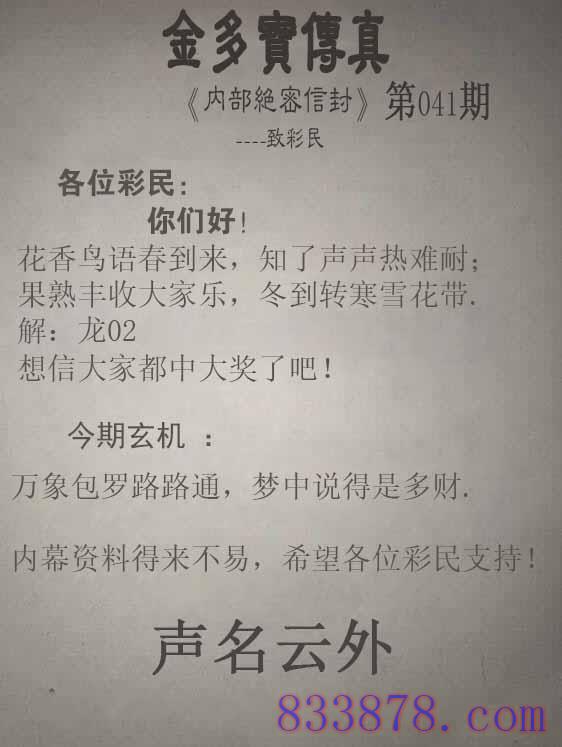 金多寶傳真
《内部絕密信封》第041期
----致彩民
各位彩民：
你们好！
花香鸟语春到来，知了声声热难耐；
果熟丰收大家乐，冬到转寒雪花带.
解：龙02
想信大家都中大奖了吧！
今期玄机 ：
万象包罗路路通，梦中说得是多财.
内幕资料得来不易，希望各位彩民支持！
声名云外
833878.com